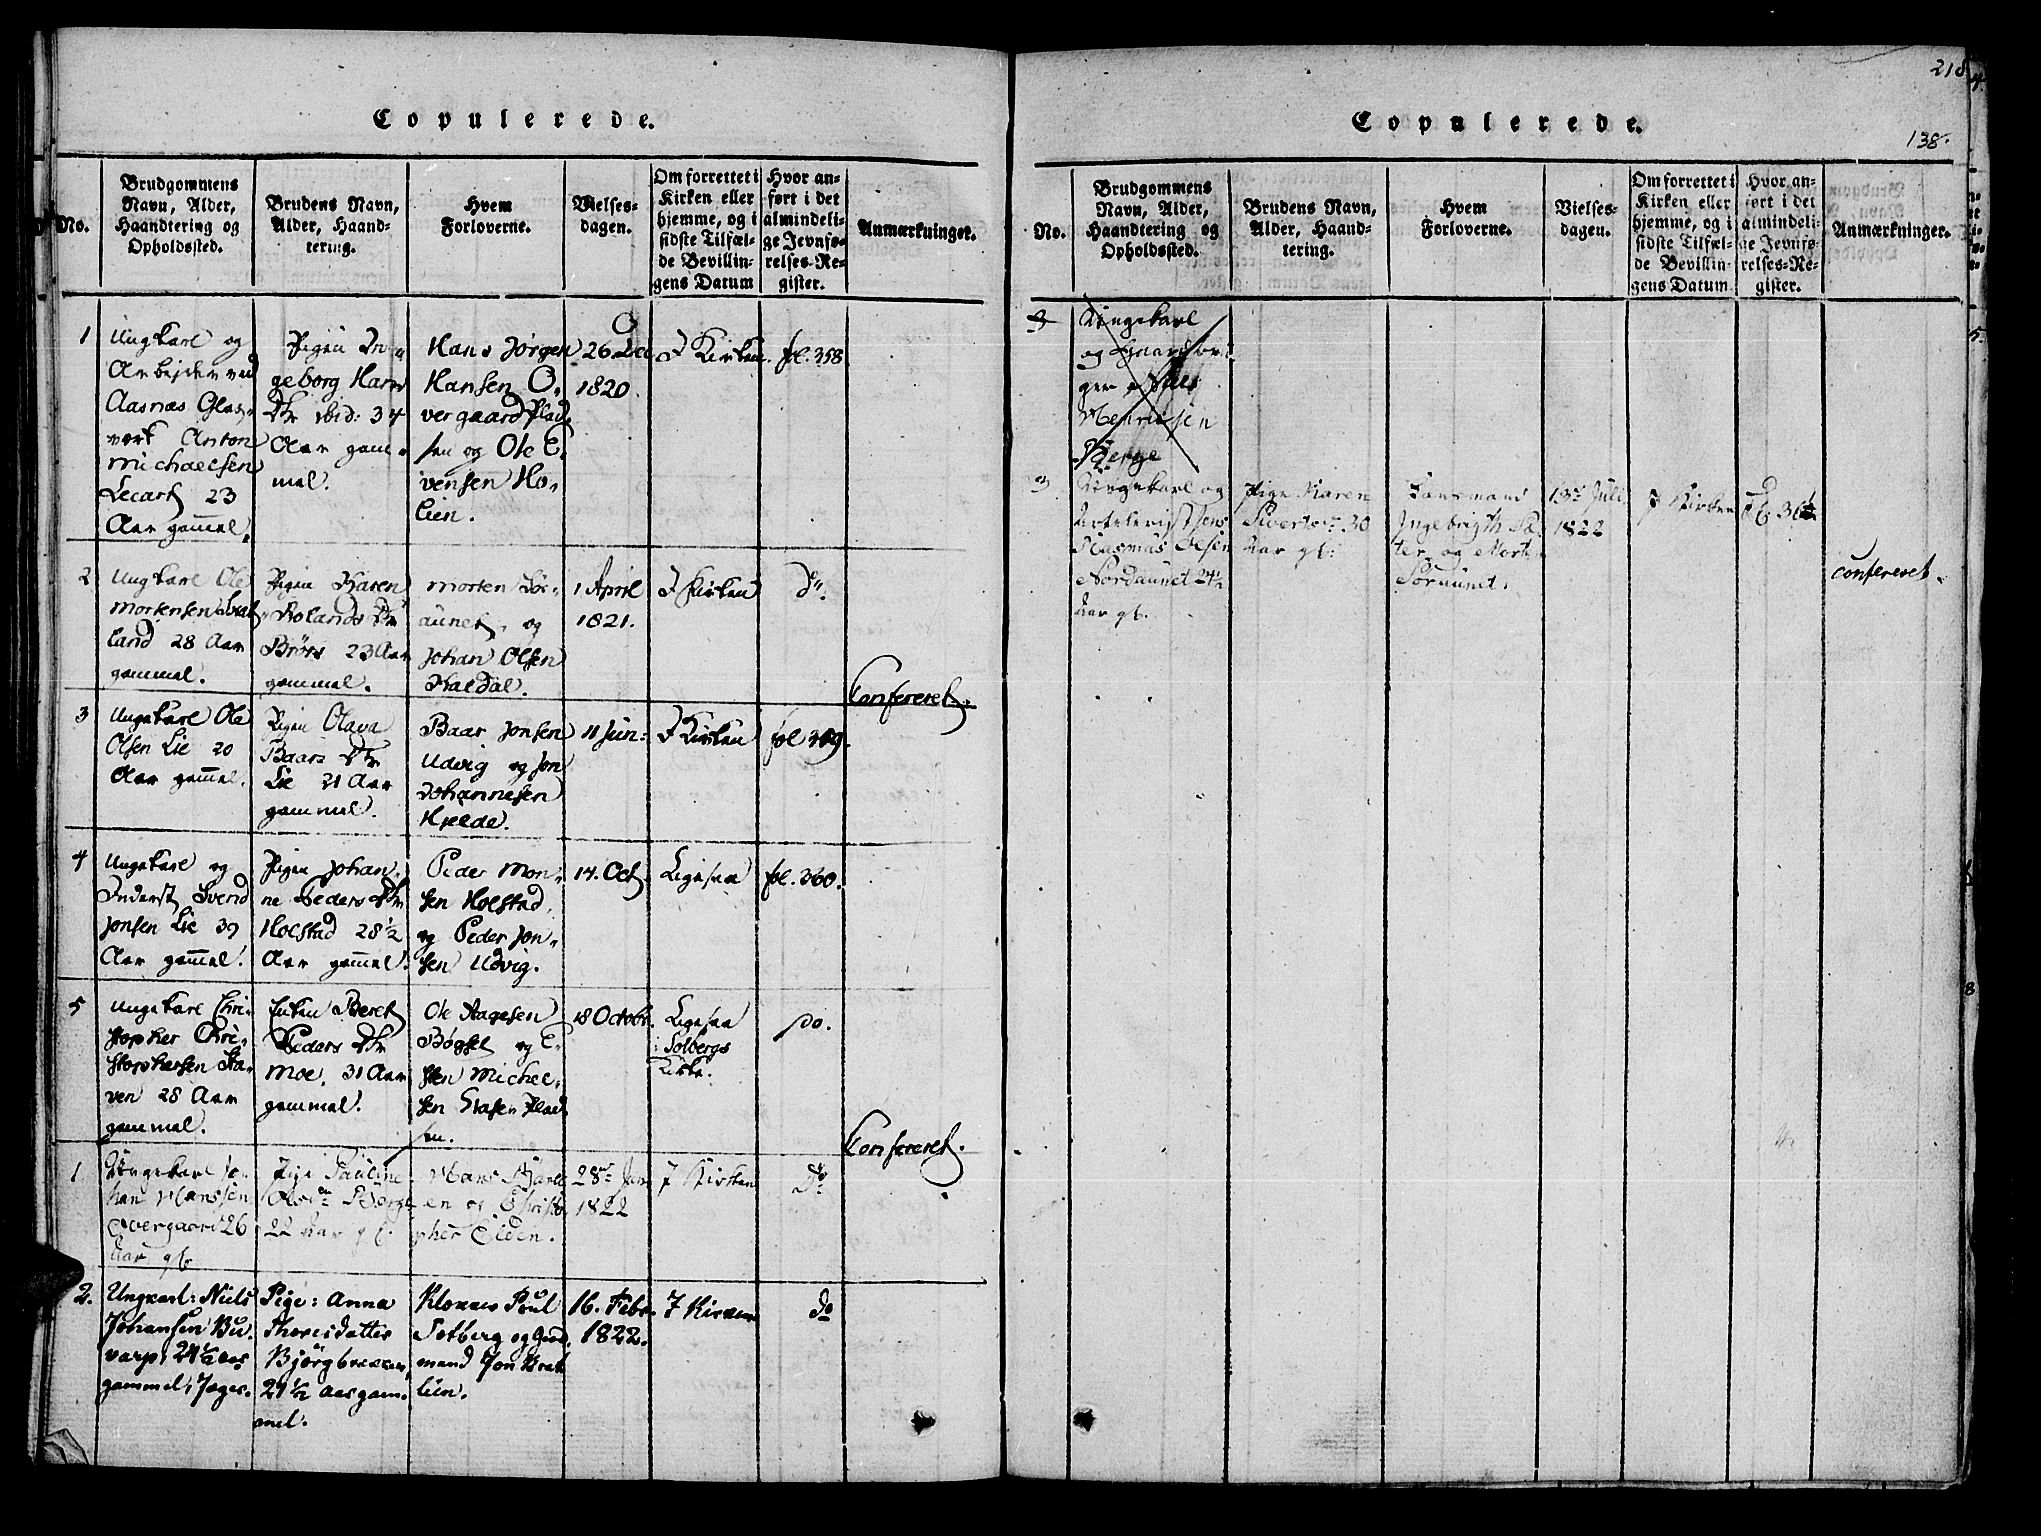 Copulerede.
No.
Brudgommens
Navn, Alder,
Haandtering og
Opholdssted.
Brudens Navn,
Alder, Haand-
tering.
Hvem
Forloverne.
Vielses-
dagen.
Om forrettet i
Kirken eller
hjemme, og i
sidste Tilfæl-
de Bevillin-
gens Datum
Hvor an-
ført i det
almindeli-
ge Jevnfø-
relses-Re-
gister.
Anmærkninger.
1
Ungkarl og
Arbejder ved
Aasnæs Glas-
værk Anton
Michaelsen
Lecart 23
Aar gammel.
Pigen In-
geborg Hans
Dtr ibid: 34
Aar gam-
mel.
Hans Jørgen
Hansen O-
vergaard Plad-
sen og Ole E-
vensen Ho-
lien.
26 Dec
1820
I Kirken.
fol. 358
2
Ungkarl Ole
Mortensen
land 28 Aar
gammel.
Pigen Karen
Rolands Dtr
Brørs 23 Aar
gammel.
Morten Sør-
aunet, og
Johan Olsen
Kaldal.
1 April
1821.
I Kirken
do.
Confereret.
3
Ungekarl Ole
Olsen Lie 20
Aar gammel.
Pigen Olava
Baars Dtr
Lie 21 Aar
gammel.
Baar Jonsen
Udvig og Jon
Johannesen
Hjelde.
11 Jun:
I Kirken
fol 359.
4
Ungekarl og
Inderst Svend
Jonsen Lie 39
Aar gammel.
Pigen Johan-
ne Peders Dtr
Holstad 28 1/2
Aar gammel.
Peder Mon-
sen Holstad,
og Peder Jon-
sen Udvig.
14. Oct.
Ligesaa
fol. 360.
5
Ungekarl Chri-
stopher Chri-
stophersen Sta-
ven 28 Aar
gammel.
Enken Beret
Peders Dtr
Moe. 31 Aar
gammel.
Ole Aagesen
Bøgset og E-
sten Michel-
sen Plad-
sen.
18 Octobr.
Ligesaa
i Solbergs
Kirke.
do.
Confereret.
1
Ungekarl Jo-
han Hanssen
Overgaard 26
Aar gl.
Pige Pauline
22 Aar gl.
Hans
en og Christo-
pher Eiden.
28de Jan
1822
I Kirken
Do
2.
Ungkarl: Niels
Johansen Bu-
varp, 24 1/2 aar
gammel, Jæger.
Pige: Anna
Thoresdatter
Bjørgbrækken,
27 1/2 aar gam-
mel.
Klokker Poul
Solberg og Gaard-
mand Jon Brat-
lien.
16. Febr.
1822.
I Kirken
do
218
Copulerede.
138.
No.
Brudgommens
Navn, Alder,
Haandtering og
Opholdssted.
Brudens Navn,
Alder, Haand-
tering.
Hvem
Forloverne.
Vielses-
dagen.
Om forrettet i
Kirken eller
hjemme, og i
sidste Tilfæl-
de Bevillin-
gens Datum
Hvor an-
ført i det
almindeli-
ge Jevnfø-
relses-Re-
gister.
Anmærkninger.
3
Ungekarl
og Gaardbru-
ger
Henrichsen
Berge
3
Ungekarl og
Artelerist
Rasmus Olsen
Nordaunet 24 1/2
Aar gl.
Pige Karen
Sivertsdr 30
Aar gl:
Lænsmand
Ingebrigth Sæ-
ter og Morten
Søraunet.
13de Juli
1822
I Kirken
361
confereret.